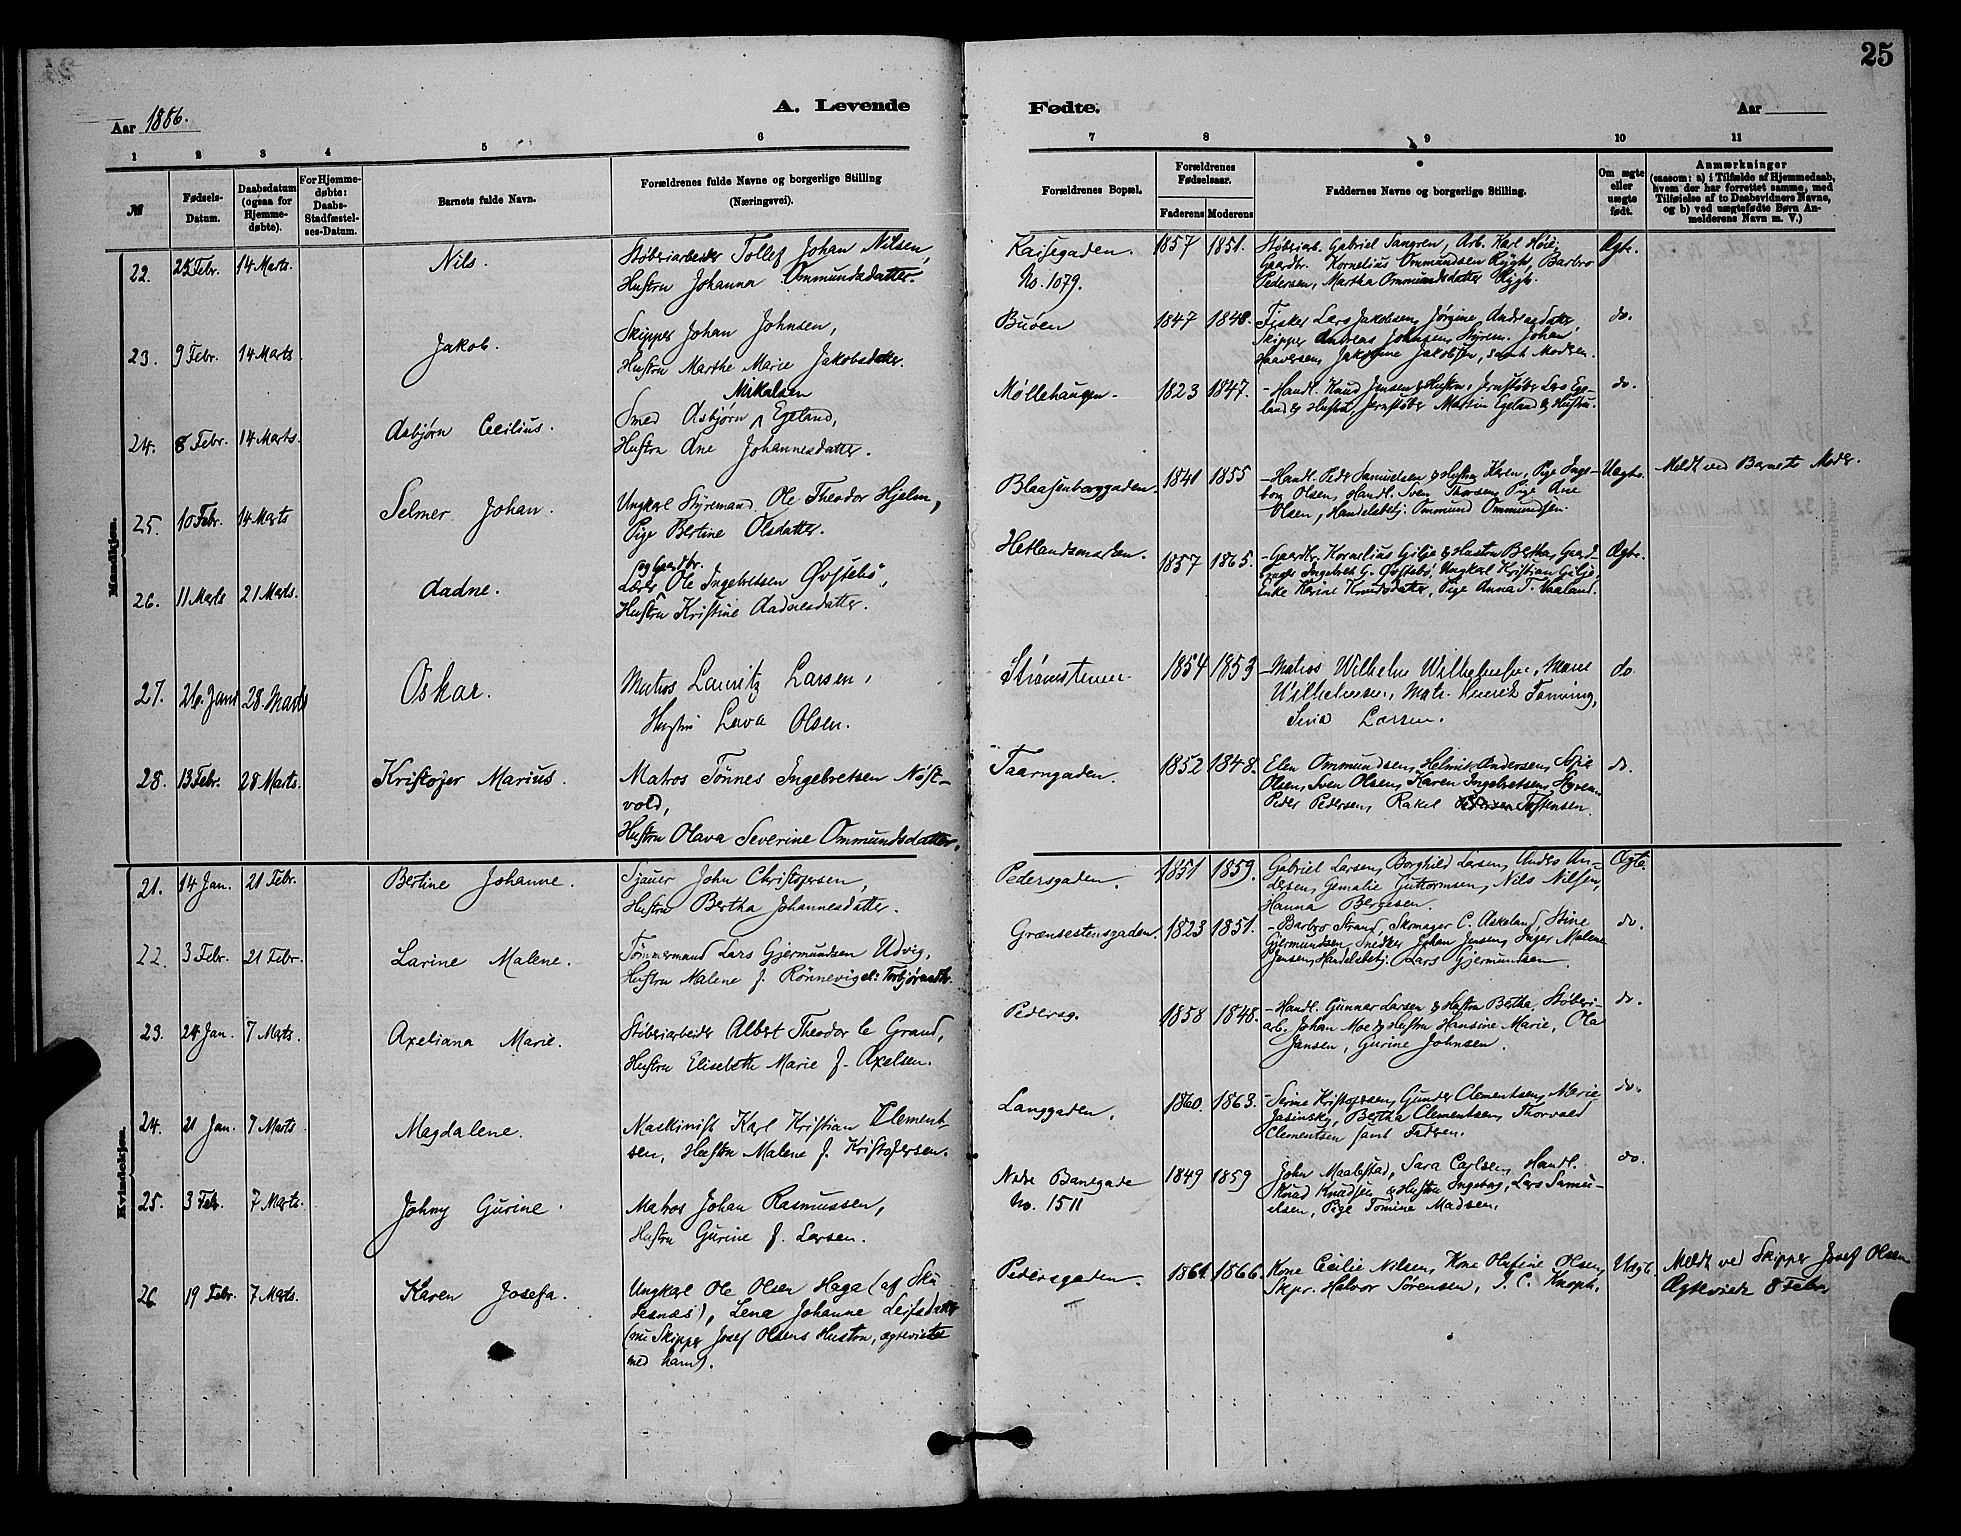 25
Aar 1886.
A. Levende
Fødte.
Aar
1 2 3 4 5 6 7 8 9 10 11
№
Fødsels-Datum.
Daabsdatum (ogsaa for Hjemme-døbte).
For Hjemme-døbte: Daabs-Stadfæstel-ses-Datum.
Barnets fulde Navn.
Forældrenes fulde Navne og borgerlige Stilling (Næringsvei).
Forældrenes Bopæl.
Forældrenes Fødselsaar.
Faderens Moderens
Faddernes Navne og borgerlige Stilling.
Om ægte eller uægte født.
Anmærkninger
(saasom: a) i Tilfælde af Hjemmedaab, hvem der har forrettet samme, med Tilføielse af to Daabsvidners Navne, og b) ved uægtefødte Børn An-melderens Navn m. V.)
Mandkjøn.
22. 25 Febr. 14 Marts. Nils. Støberiarbeider Tollef Johan Nilsen,
Hustru Johanna Ommundsdatter.
Kaisegaden. No. 1079. 1857 1851. Støberiarb. Gabriel Sangren, Arb. Karl Høie,
Gaardbr. Kornelius Ommundsen Rygh, Barbro
Pedersen, Martha Ommundsdatter Rygh. Ægte.
23. 9 Febr. 14 Marts Jakob. Skipper Johan Johnsen,
Hustru Marthe Marie Jakobsdatter.
Buøen 1847 1848. Fisker Lars Jakobsen, Jørgine Andreasdatter,
Skipper Andreas Johnsen, Styrem. Johan
Haaversen, Jakobine Jakobsen, samt Modren. do.
24. 8 Febr. 14 Marts. Asbjørn Cecilius. Smed Asbjørn Mikalsen Egeland,
Hustru Ane Johannesdatter.
Møllehaugen. 1823 1847. - Handl. Knud Jensen & Hustru, Jernstøber Lars Ege-
land & Hustru, Jernstøber Martin Egeland & Hustru. do.
25. 10 Febr. 14 Marts Selmer Johan. Ungkarl Styremand Ole Theodor Hjelm,
Pige Bertine Olsdatter.
Blaasenborggaden. 1841 1855 - Handl. Peder Samuelsen & Hustru Karen, Pige Inge-
borg Olsen, Handl. Sven Thorsen, Pige Ane
Olsen, Handelsbetj. Ommund Ommundsen. Uægte. Meldt ved Barnets Moder.
26. 11 Marts 21 Marts. Aadne. Lærer og Gaardbr. Ole Ingebretsen Øvstebø,
Hustru Kristine Aadnesdatter.
Hetlandsmarken. 1857 1865. - Gaardbr. Kornelius Gilje & Hustru Bertha, Gaard-
bruger Ingebret G. Øvstebø, Ungkarl Kristian Gilje,
Enke Karine Knudsdatter, Pige Anna T. Vaaland. Ægte.
27. 26 Janr 28 Marts Oskar. Matros Lauritz Larsen,
Hustru Lava Olsen.
Strømstenen 1854 1853 - Matros Wilhelm Wilhelmsen, Marie
Wilhelmsen, Matr. Henrik Tønning,
Larsen. do
28. 13 Febr. 28 Marts. Kristofer Marius. Matros Tönnes Ingebretsen Nøst-
vold,
Hustru Olava Severine Ommundsdatter.
Taarngaden. 1852 1848. Elen Ommundsen, Helmik Andersen, Sofie
Olsen, Sven Olsen, Karen Ingebretsen,
Peder Pedersen, Rakel Tostensen. do.
Kvindekjøn.
21. 14 Jan. 21 Febr. Bertine Johanne. Sjauer John Christofersen,
Hustru Bertha Johannesdatter.
Pedersgaden. 1851 1859. Gabriel Larsen, Borghild Larsen, Anders An-
dersen, Gemalie Guttormsen, Nils Nilsen,
Hanna Bergesen. Ægte.
22. 3 Febr. 21 Febr. Larine Malene. Tømmermand Lars Gjermundsen Udvig,
Hustru Malene f. Rønnevig
Grænsestensgaden. 1823 1851. - Barbro Strand, Skomager C. Askeland, Stine
Gjermundsen, Snedker Johan Jensen, Inger Malene
Jensen, Handelsbetj. Lars Gjermundsen. do.
23. 24 Jan. 7 Marts. Axeliana Marie. Støberiarbeider Albert Theodor le Grand,
Hustru Elisebeth Marie f. Axelsen.
Pedersg. 1858 1848. - Handl. Gunnar Larsen & Hustru Bertha, Støberi-
arb. Johan Moe & Hustru Hansine Marie, Ola
Jansen, Gurine Johnsen. do.
24. 21 Jan. 7 Marts Magdalene. Maskinist Karl Kristian Clement-
sen, Hustru Malene f. Kristofersen.
Langgaden. 1860. 1863. - Serine Kristofersen, Gunder Clementsen, Marie
Jasinsky, Bertha Clementsen, Thorvald
Clementsen samt Fadren. do.
25. 3 Febr. 7 Marts. Johny Gurine. Matros Johan Rasmussen,
Hustru Gurine f. Larsen.
Nedre Banegade No. 1511 1849 1859 John Maalestad, Sara Carlsen, Handl.
Knud Knudsen & Hustru Ingeborg, Lars Samu-
elsen, Pige Tomine Madsen. do.
26. 19 Febr. 7 Marts. Karen Josefa. Ungkarl Ole Olsen Haga (af Sku
desnæs), Lena Johanne Leifsdatter
(nu Skipper Josef Olsens Hustru, ægteviet
med ham).
Pedersgaden. 1861. 1866. Kone Cecilie Nilsen, Kone Olufine Olsen,
Skpr. Halvor Sørensen, I. C. Knoph. Uægte. Meldt ved Skipper Josef Olsen
Ægteviede 8 Febr.